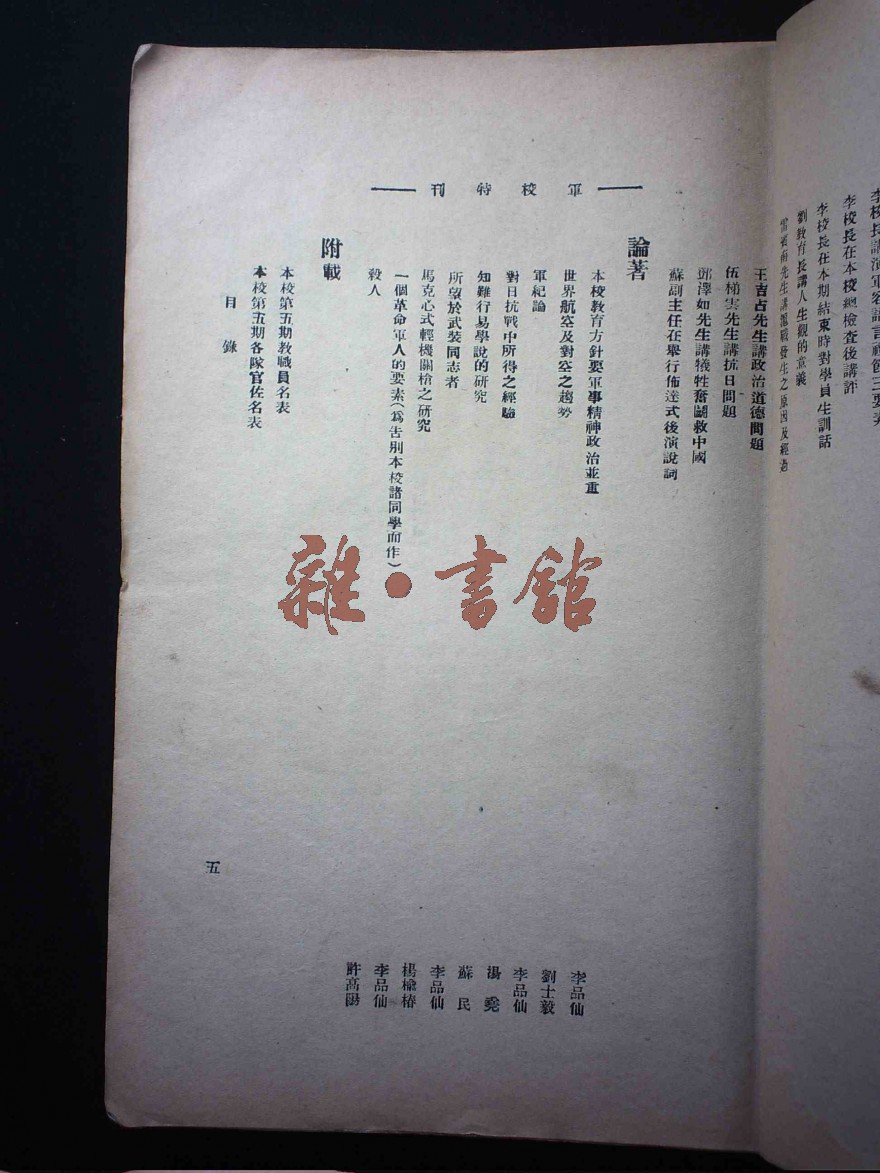 李校長在本校總檢查後講評
李校長在本期結束時對學員生訓話
劉教育長講人生觀的意義
軍校特刊
王吉占先生講政治道德問題
伍梯雲先生講抗日問題
鄧澤如先生講犧牲奮鬭救中國
蘇副主任在舉行佈達式後演說詞
論著
本校教育方針要軍事精神政治並重 李品仙
世界航空及對空之趨勢 劉士毅
軍紀論 李品仙
對日抗戰中所得之經驗 湯毚
知難行易學說的研究 蘇民
所望於武裝同志者 李品仙
馬克心式輕機關槍之研究 楊樾椿
一個革命軍人的要素(爲告別本校諸同學而作) 李品仙
殺人 許高陽
附載
本校第五期教職員名表
本校第五期各隊官佐名表
目錄
五
雜·書館